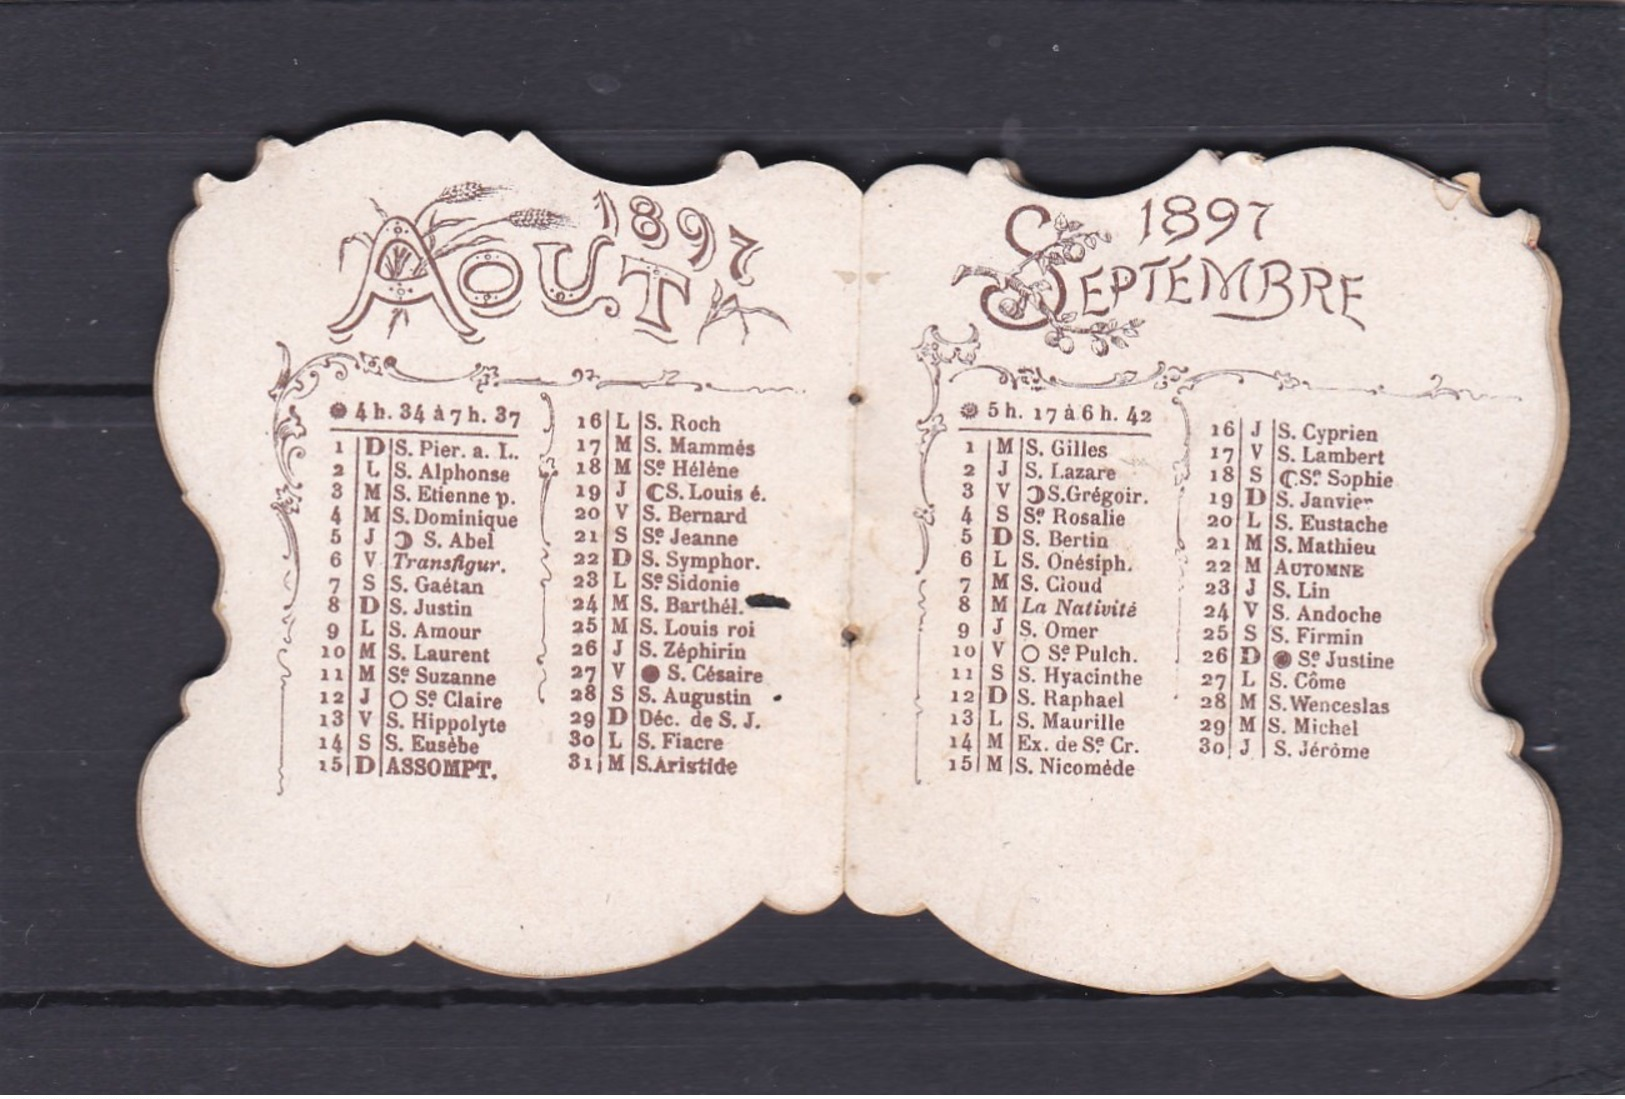 1897
AOUT
4 h. 34 à 7 h. 37
1 D S. Pier. a. L.
2 L S. Alphonse
3 M S. Etienne p.
4 M S. Dominique
5 J S. Abel
6 V Transfigur.
7 S S. Gaétan
8 D S. Justin
9 L S. Amour
10 M S. Laurent
11 M Se. Suzanne
12 J Se. Claire
13 V S. Hippolyte
14 S S. Eusèbe
15 D ASSOMPT.
16 L S. Roch
17 M S. Mammés
18 M Se. Hélène
19 J S. Louis é.
20 V S. Bernard
21 S Se. Jeanne
22 D S. Symphor.
23 L Se. Sidonie
24 M S. Barthél.
25 M S. Louis roi
26 J S. Zéphirin
27 V S. Césaire
28 S S. Augustin
29 D Déc. de S. J.
30 L S. Fiacre
31 M S. Aristide
1897
SEPTEMBRE
5 h. 17 à 6 h. 42
1 M S. Gilles
2 J S. Lazare
3 V S. Grégoir.
4 S Se. Rosalie
5 D S. Bertin
6 L S. Onésiph.
7 M S. Cloud
8 M La Nativité
9 J S. Omer
10 V Se. Pulch.
11 S S. Hyacinthe
12 D S. Raphael
13 L S. Maurille
14 M Ex. de Se. Cr.
15 M S. Nicomède
16 J S. Cyprien
17 V S. Lambert
18 S Se. Sophie
19 D S. Janvier
20 L S. Eustache
21 M S. Mathieu
22 M AUTOMNE
23 J S. Lin
24 V S. Andoche
25 S S. Firmin
26 D Se. Justine
27 L S. Côme
28 M S. Wenceslas
29 M S. Michel
30 J S. Jérôme